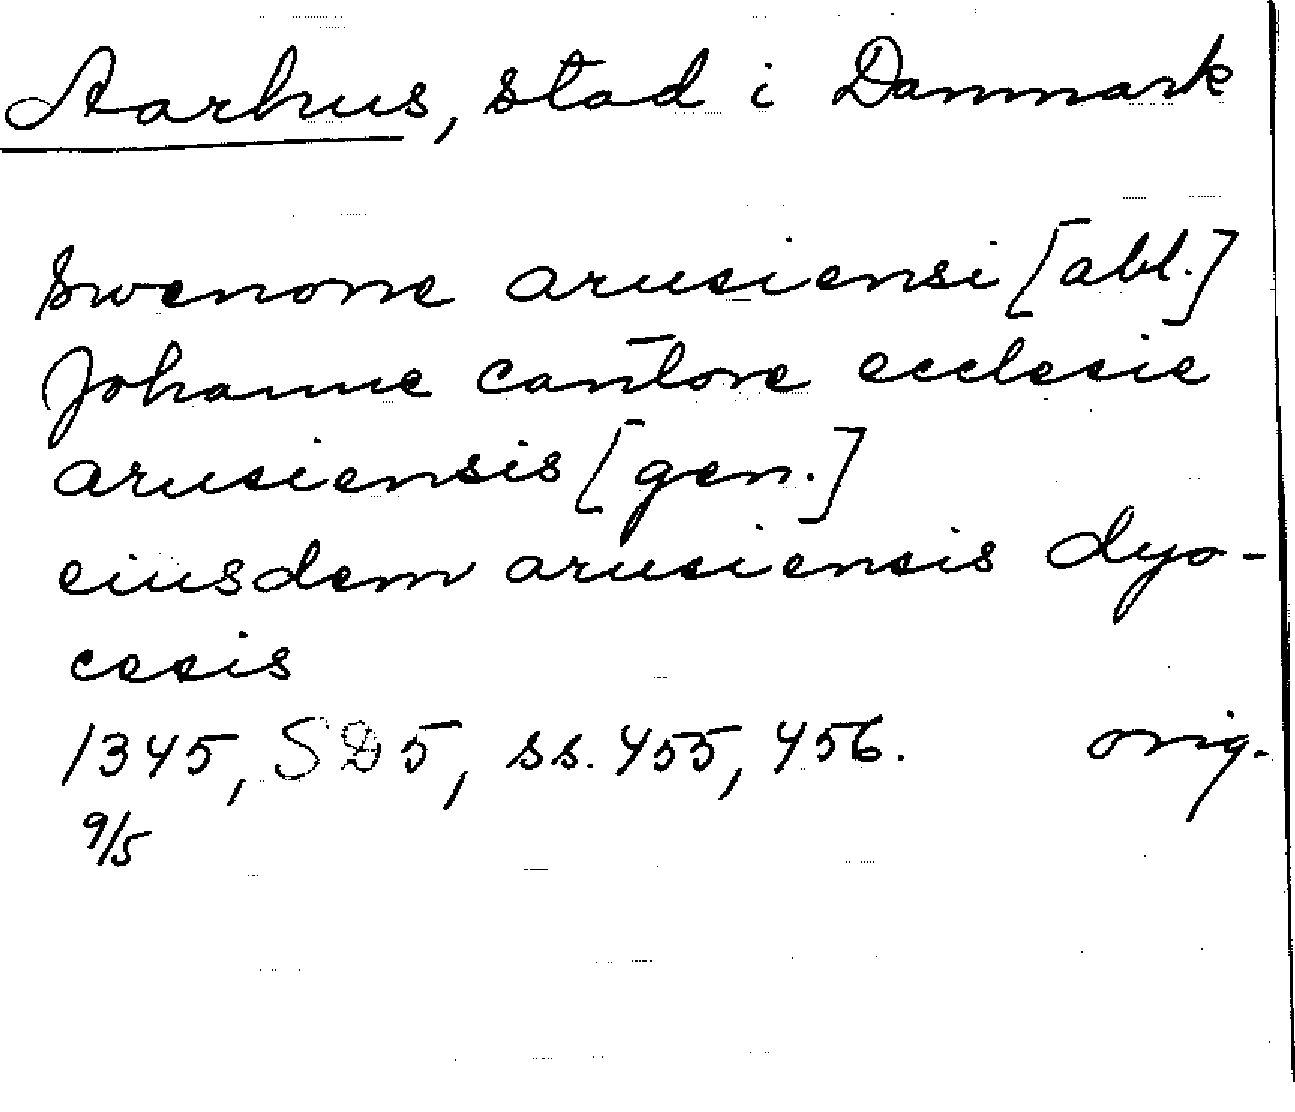 Aarhus, stad i Danmark
Swenone arusiensi [abl.]
Johanne cantore ecclesie
arusiensis [gen.]
eiusdem arusiensis dyo-
cesis
1345, SD5, ss. 455, 456. orig.
9/5